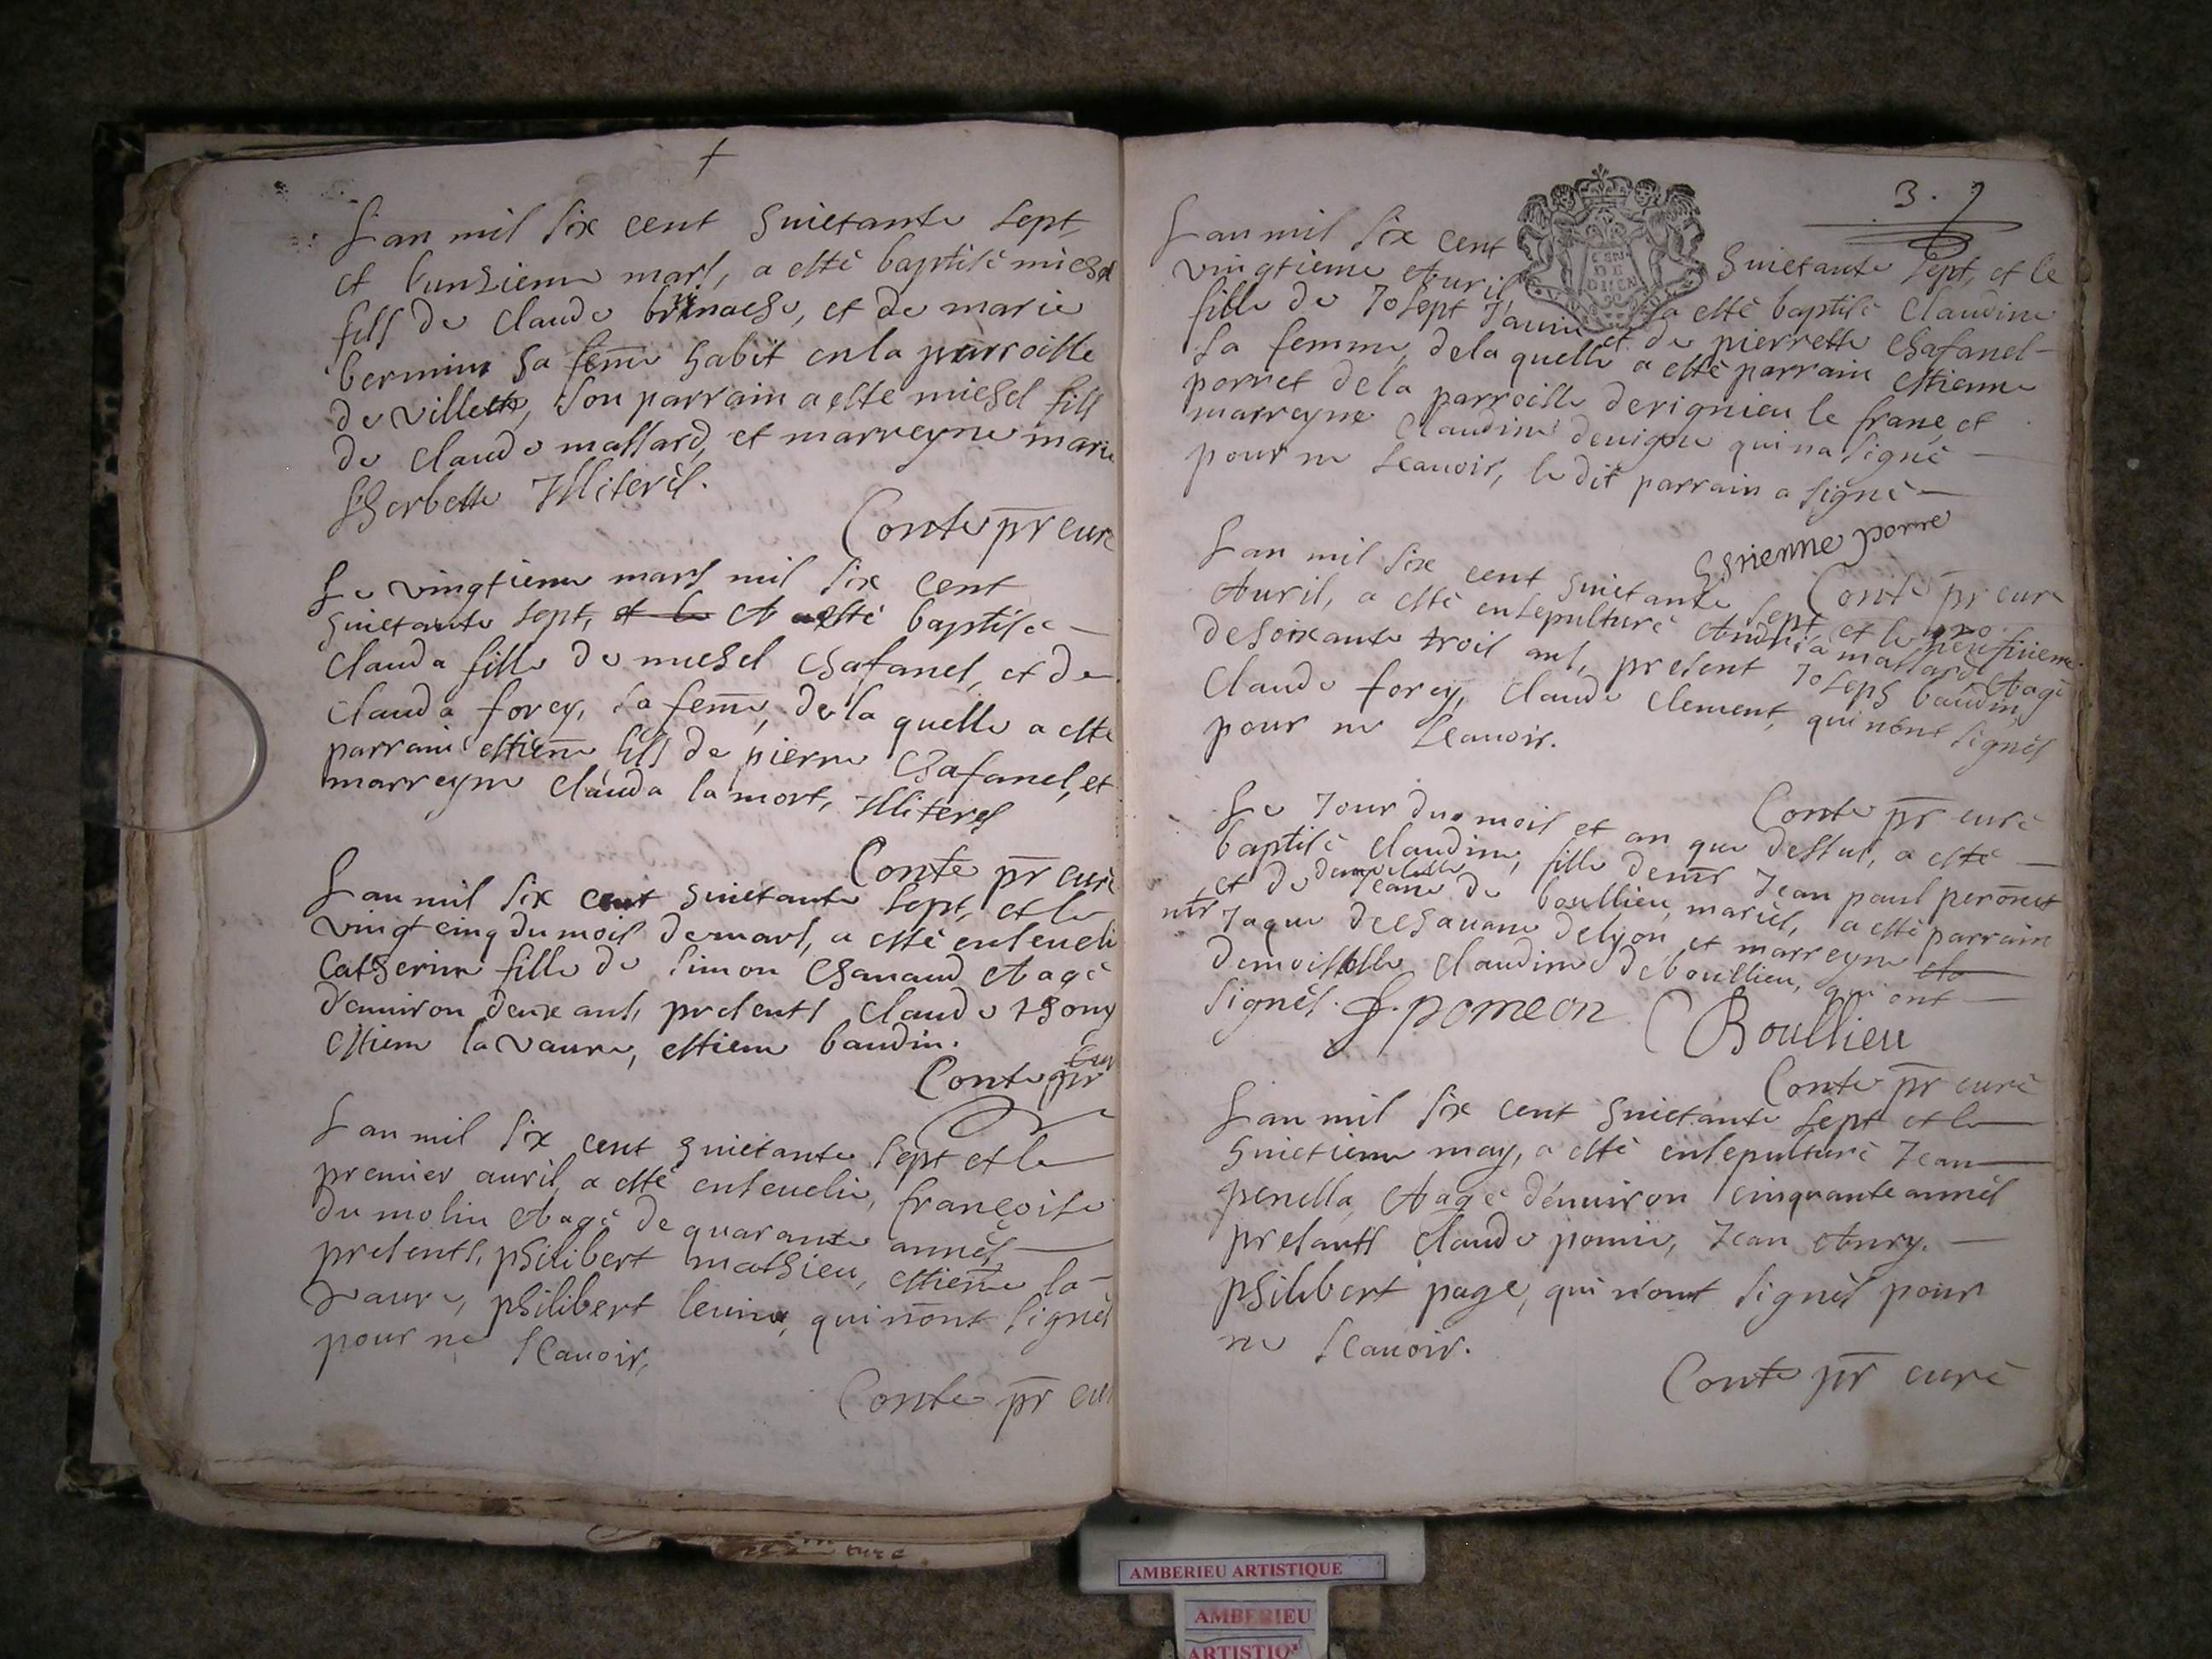 Lan mil six cent huictante sept
et l'unzieme mars, a esté baptisé michel
fils de claude brinache, et de marie
bermin sa feme habit en la parroisse
de villette, son parrain a esté michel fils
de claude massard, et marreyne marie
therbette Illiterés.
Conte pr curé
Le vingtieme mars mil six cent
huictante sept, et le A esté baptisé
clauda fille de michel chafanel, et de
clauda forey, sa feme, de la quelle a esté
parrain estiene fils de pierre chafanel, et
marreyne clauda la mort, Illiterés
Conte pr curé
Lan mil six cent huictante sept, et le
vingt cinq du mois de mars, a esté enseveli
Catherine fille de simon chanaud Aagé
d'environ deux ans, presents claude thony
estiene la vaure, estiene baudin.
Conte pr cur
Lan mil six cent huictante sept et le
premier auril, a esté ensevelie, françoise
du molin Aagé de quarante annés
presents, philibert mathieu, estiene la
vaure, philibert, qui n'ont signés
pour ne scauoir,
Conte pr cu
3.
Lan mil six cent huictante sept, et le
vingtieme Auril a esté baptisé Claudine
fille de Josept Janin et de pierrette chafanel
sa femme, de la quelle a esté parrain estienne
porret de la parroisse de rignieu le franc, et
marreyne Claudine qui n'a signé
pour ne scauoir, le dit parrain a signé
Estienne porre
Conte pr curé
Lan mil six cent huictante sept et le
Auril, a esté ensepulturé massard Aagé
de soixante trois ans, present Joseph baudin,
Claude forey, claude clement, qui n'ont signés
pour ne scauoir.
Conte pr curé
Le Jour du mois et an que dessus, a esté
baptisé claudine, fille de mr Jean paul peronet
et de demoiselle Jeane de boullieu, mariés, a esté parrain
Jaque de chauane de lyon, et marreyne
demoiselle claudine de boullieu, qui ont
signés. J. pomeon C Boullieu
Conte pr curé
Lan mil six cent huictante sept et le
huictieme may, a esté ensepulturé Jean
penella, Aagé d'enuiron cinquante annés
presants Claude pomie, Jean Anry.
philibert page, qui n'ont signés pour
ne scauoir.
Conte pr curé
AMBERIEU ARTISTIQUE
AMBERIEU
ARTISTIQ